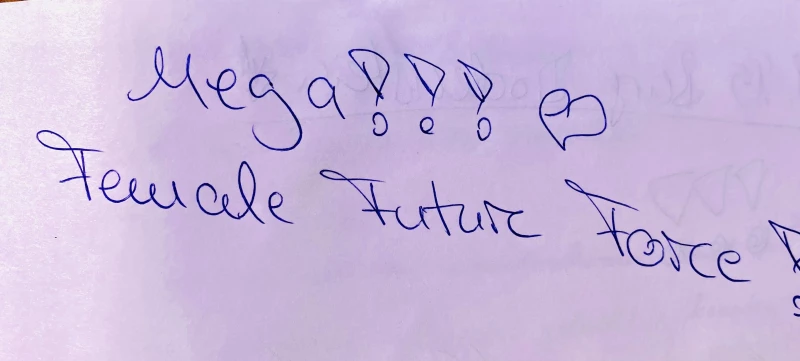 Mega!!! ♡
Female Future Force!